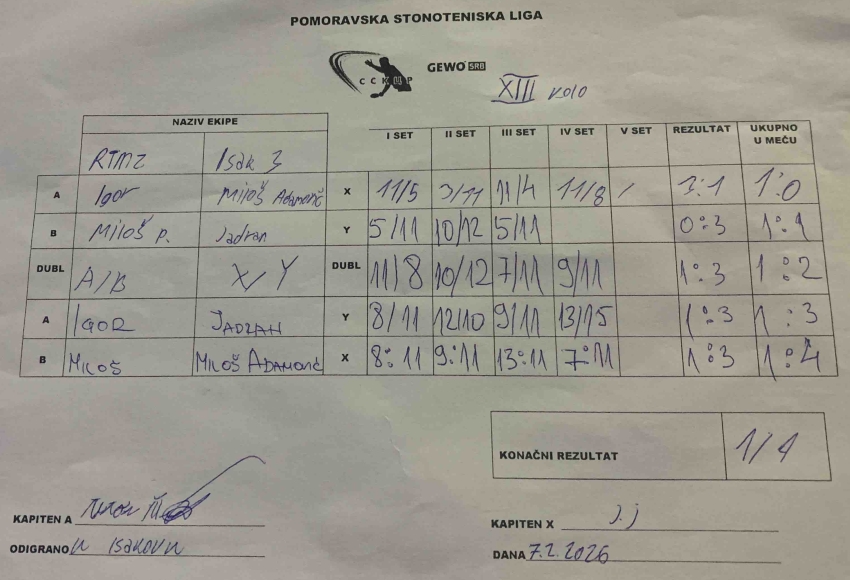 POMORAVSKA STONOTENISKA LIGA
CCKUP GEWO SRB
XIII kolo
NAZIV EKIPE I SET II SET III SET IV SET V SET REZULTAT UKUPNO U MEČU
RTMZ Isak 3
A Igor Miloš Adamović X 11/5 3/11 11/4 11/8 / 3:1 1:0
B Miloš P. Jadran Y 5/11 10/12 5/11 0:3 1:1
DUBL A/B X/Y DUBL 11/8 10/12 7/11 9/11 1:3 1:2
A IGOR JADRAN Y 8/11 12/10 9/11 13/15 1:3 1:3
B MILOŠ MILOŠ ADAMOVIĆ X 8:11 9:11 13:11 7:11 1:3 1:4
KONAČNI REZULTAT 1/4
KAPITEN A
KAPITEN X J.J
ODIGRANO u Isakovu
DANA 7.2.2026